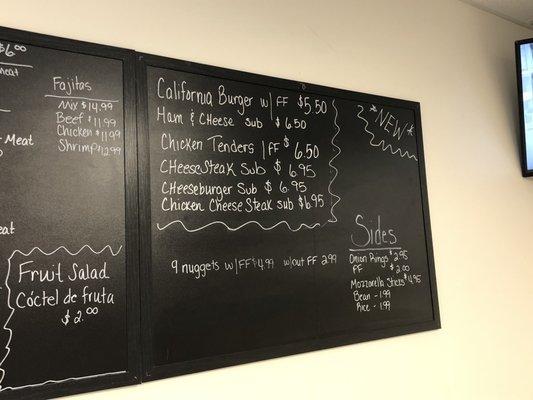 $6.00
meat
Meat
meat
Fajitas
Mix $14.99
Beef $11.99
Chicken $11.99
Shrimp $12.99
Fruit Salad
Cóctel de fruta
$2.00
California Burger w/ FF $5.50
Ham & Cheese Sub $6.50
Chicken Tenders /FF $6.50
CheeseSteak Sub $6.95
Cheeseburger Sub $6.95
Chicken CheeseSteak Sub $6.95
9 nuggets w/FF $4.99 w/out FF 2.99
*NEW*
Sides
Onion Rings $2.95
FF $2.00
Mozzarella Sticks $4.95
Bean - 1.99
Rice - 1.99